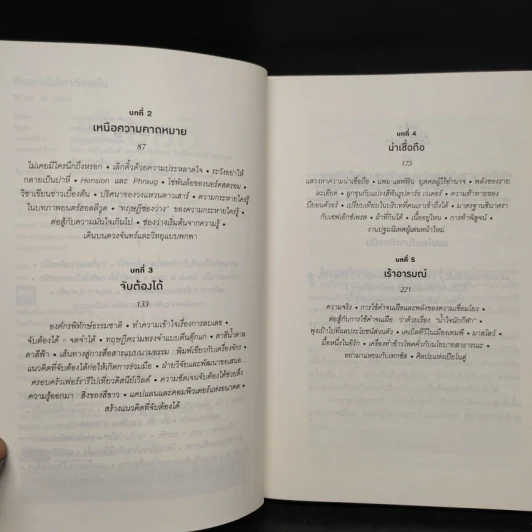 บทที่ 2
เหนือความคาดหมาย
87
ไม่เคยมีใครนึกถึงหรอก • เลิกคิ้วด้วยความประหลาดใจ • ระวังอย่าให้
กลายเป็นปาหี่ • Hension และ Phraug • โซ่พันล้อของนอร์ดสตรอม
วิชาเขียนข่าวเบื้องต้น • ปริศนาของวงแหวนดาวเสาร์ • ความกระหายใคร่รู้
ในบทภาพยนตร์ฮอลลีวูด • "ทฤษฎีช่องว่าง" ของความกระหายใคร่รู้ •
ต่อสู้กับความมั่นใจเกินไป • ช่องว่างเริ่มต้นจากความรู้ •
เดินบนดวงจันทร์และวิทยุแบบพกพา
บทที่ 3
จับต้องได้
133
องค์กรพิทักษ์ธรรมชาติ • ทำความเข้าใจเรื่องการลบเลข •
จับต้องได้ = จดจำได้ • ทฤษฎีความทรงจำแบบตีนตุ๊กแก • ตาสีน้ำตาล
ตาสีฟ้า • เส้นทางสู่การสื่อสารแบบนามธรรม : พิมพ์เขียวกับเครื่องจักร •
แนวคิดที่จับต้องได้ก่อให้เกิดการร่วมมือ • ฝ่ายวิจัยและพัฒนาขอเสนอ...
ครอบครัวเฟอร์รารีไปเที่ยวดิสนีย์เวิลด์ • ความชัดเจนจับต้องได้ช่วยดึง
ความรู้ออกมา : สิ่งของสีขาว • แคปแลนและคอมพิวเตอร์แห่งอนาคต •
สร้างแนวคิดที่จับต้องได้
บทที่ 4
น่าเชื่อถือ
175
แสวงหาความน่าเชื่อถือ • แพม แลฟฟิน บุคคลผู้ไร้อำนาจ • พลังของราย
ละเอียด •
เปรียบเทียบในบริบทที่คนเราเข้าถึงได้ • มาตรฐานซินาตรา
กับเซฟเอ็กซ์เพรส • ผ้าที่กินได้ • เนื้ออยู่ไหน • การท้าพิสูจน์ •
งานปฐมนิเทศผู้เล่นหน้าใหม่
บทที่ 5
เร้าอารมณ์
221
ความจริง • การใช้คำจนเฝือและพลังของความเชื่อมโยง •
ต่อสู้กับการใช้คำจนเฝือ : ว่าด้วยเรื่อง "น้ำใจนักกีฬา" •
พุ่งเป้าไปที่ผลประโยชน์ส่วนตัว • เคเบิลทีวีในเมืองเทมพี • มาสโลว์ •
มื้อหนึ่งในอิรัก •
อย่ามาแหยมกับเทกซัส • ศิลปะแห่งเปียโนคู่